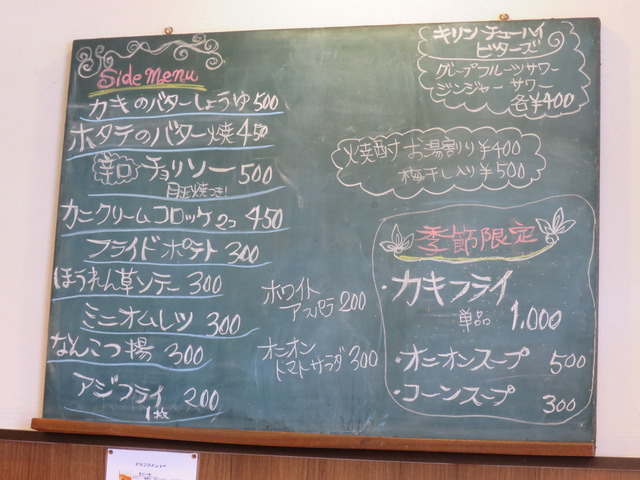 Side Menu
カキのバターしょうゆ 500
ホタテのバター焼 450
辛口チョリソー 500
目玉焼つき!
カニクリームコロッケ2コ 450
フライドポテト 300
ほうれん草ソテー 300
ミニオムレツ 300
なんこつ揚 300
アジフライ 200
1枚
ホワイト
アスパラ 200
オニオン
トマトサラダ 300
キリンチューハイ
ビターズ
グレープフルーツサワー
ジンジャーサワー
各¥400
焼酎 お湯割り ¥400
梅干し入り ¥500
季節限定
・カキフライ
単品 1,000
・オニオンスープ 500
・コーンスープ 300